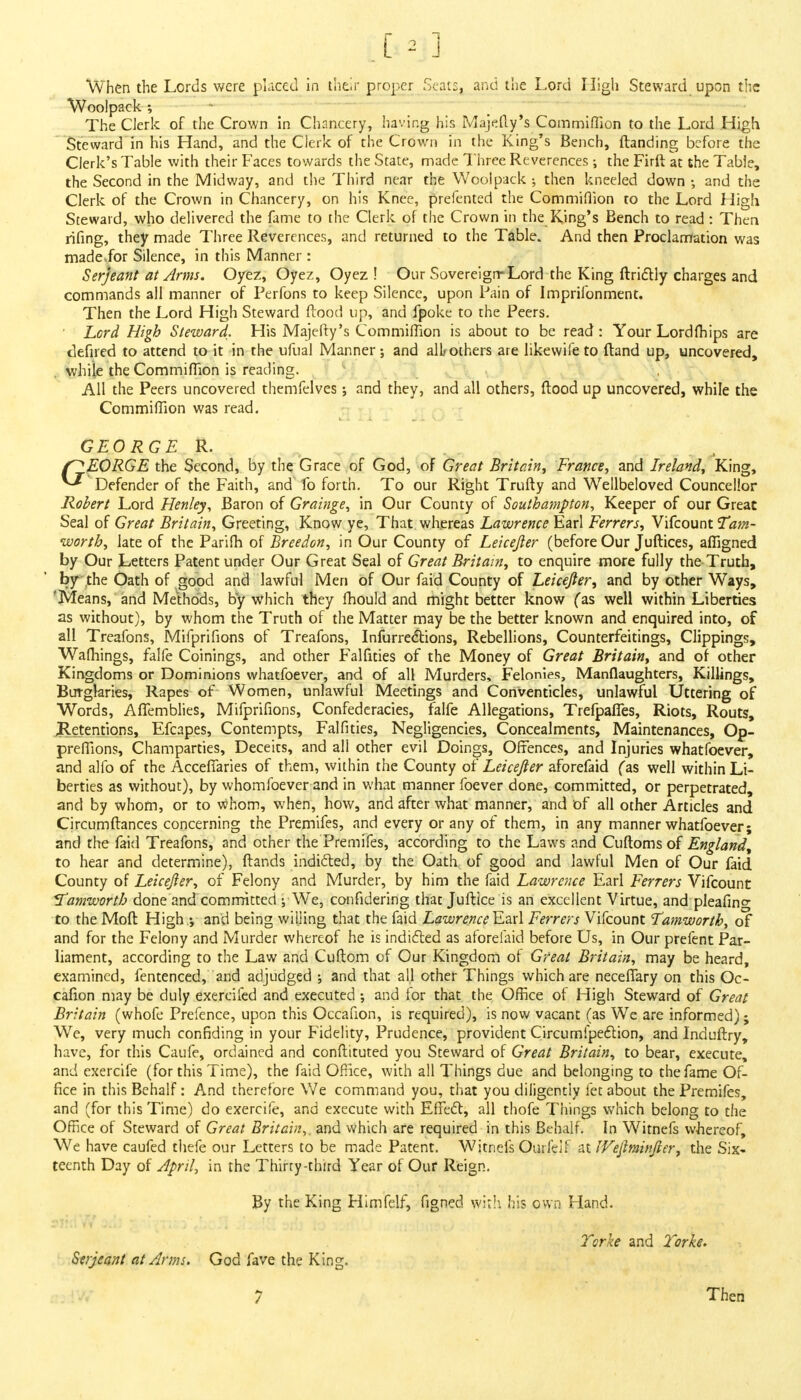 [ 2 ]
When the Lords were placed in their proper Seats, and the Lord High Steward upon the
Woolpack ;
The Clerk of the Crown in Chancery, having his Majeſty's Commiſſion to the Lord High
Steward in his Hand, and the Clerk of the Crown in the King's Bench, ſtanding before the
Clerk's Table with their Faces towards the State, made Three Reverences ; the Firſt at the Table,
the Second in the Midway, and the Third near the Woolpack ; then kneeled down ; and the
Clerk of the Crown in Chancery, on his Knee, preſented the Commiſſion to the Lord High
Steward, who delivered the ſame to the Clerk of the Crown in the King's Bench to read : Then
riſing, they made Three Reverences, and returned to the Table. And then Proclamation was
made for Silence, in this Manner :
Serjeant at Arms. Oyez, Oyez, Oyez ! Our Sovereign Lord the King ſtrictly charges and
commands all manner of Perſons to keep Silence, upon Pain of Impriſonment.
Then the Lord High Steward ſtood up, and ſpoke to the Peers.
Lord High Steward. His Majeſty's Commiſſion is about to be read : Your Lordſhips are
deſired to attend to it in the uſual Manner ; and all others are likewiſe to ſtand up, uncovered,
while the Commiſſion is reading.
All the Peers uncovered themſelves ; and they, and all others, ſtood up uncovered, while the
Commiſſion was read.
GEORGE R.
GEORGE the Second, by the Grace of God, of Great Britain, France, and Ireland, King,
Defender of the Faith, and ſo forth. To our Right Truſty and Wellbeloved Councellor
Robert Lord Henley, Baron of Grainge, in Our County of Southampton, Keeper of our Great
Seal of Great Britain, Greeting, Know ye, That whereas Lawrence Earl Ferrers, Viſcount Tam-
worth, late of the Pariſh of Breedon, in Our County of Leiceſter (before Our Juſtices, aſſigned
by Our Letters Patent under Our Great Seal of Great Britain, to enquire more fully the Truth,
by the Oath of good and lawful Men of Our ſaid County of Leiceſter, and by other Ways,
Means, and Methods, by which they ſhould and might better know (as well within Liberties
as without), by whom the Truth of the Matter may be the better known and enquired into, of
all Treaſons, Miſpriſions of Treaſons, Inſurrections, Rebellions, Counterfeitings, Clippings,
Waſhings, falſe Coinings, and other Falſities of the Money of Great Britain, and of other
Kingdoms or Dominions whatſoever, and of all Murders, Felonies, Manſlaughters, Killings,
Burglaries, Rapes of Women, unlawful Meetings and Conventicles, unlawful Uttering of
Words, Aſſemblies, Miſpriſions, Confederacies, falſe Allegations, Treſpaſſes, Riots, Routs,
Retentions, Eſcapes, Contempts, Falſities, Negligencies, Concealments, Maintenances, Op-
preſſions, Champarties, Deceits, and all other evil Doings, Offences, and Injuries whatſoever,
and alſo of the Acceſſaries of them, within the County of Leiceſter aforeſaid (as well within Li-
berties as without), by whomſoever and in what manner ſoever done, committed, or perpetrated,
and by whom, or to whom, when, how, and after what manner, and of all other Articles and
Circumſtances concerning the Premiſes, and every or any of them, in any manner whatſoever ;
and the ſaid Treaſons, and other the Premiſes, according to the Laws and Cuſtoms of England,
to hear and determine), ſtands indicted, by the Oath of good and lawful Men of Our ſaid
County of Leiceſter, of Felony and Murder, by him the ſaid Lawrence Earl Ferrers Viſcount
Tamworth done and committed ; We, conſidering that Juſtice is an excellent Virtue, and pleaſing
to the Moſt High ; and being willing that the ſaid Lawrence Earl Ferrers Viſcount Tamworth, of
and for the Felony and Murder whereof he is indicted as aforeſaid before Us, in Our preſent Par-
liament, according to the Law and Cuſtom of Our Kingdom of Great Britain, may be heard,
examined, ſentenced, and adjudged ; and that all other Things which are neceſſary on this Oc-
caſion may be duly exerciſed and executed ; and for that the Office of High Steward of Great
Britain (whoſe Preſence, upon this Occaſion, is required), is now vacant (as We are informed) ;
We, very much confiding in your Fidelity, Prudence, provident Circumſpection, and Induſtry,
have, for this Cauſe, ordained and conſtituted you Steward of Great Britain, to bear, execute,
and exerciſe (for this Time), the ſaid Office, with all Things due and belonging to the ſame Of-
fice in this Behalf : And therefore We command you, that you diligently ſet about the Premiſes,
and (for this Time) do exerciſe, and execute with Effect, all thoſe Things which belong to the
Office of Steward of Great Britain, and which are required in this Behalf. In Witneſs whereof,
We have cauſed theſe our Letters to be made Patent. Witneſs Ourſelf at Weſtminſter, the Six-
teenth Day of April, in the Thirty-third Year of Our Reign.
By the King Himſelf, ſigned with his own Hand.
Yorke and Yorke.
Serjeant at Arms. God ſave the King.
7 Then